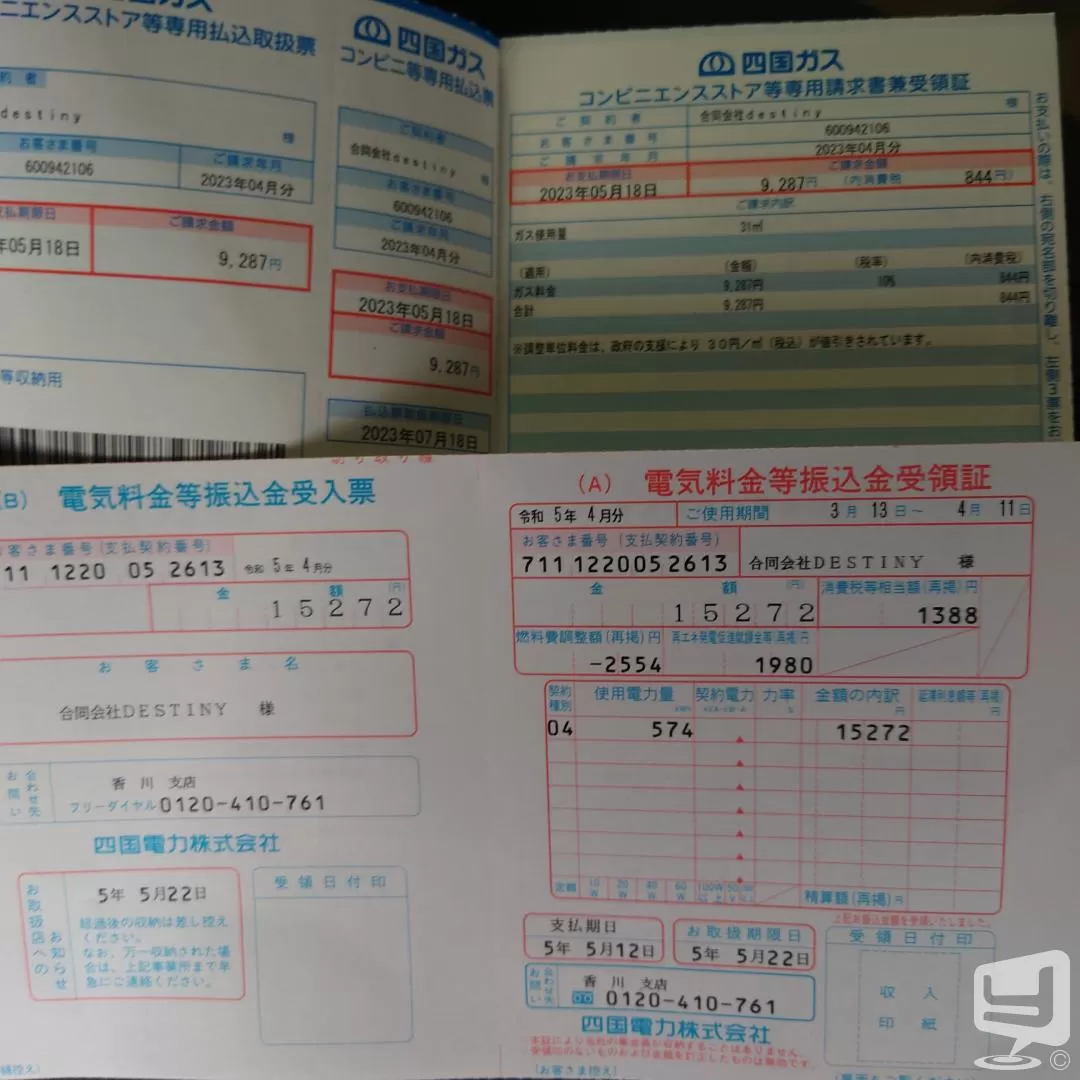 ニエンスストア等専用払込取扱票
約者
destiny
様
お客さま番号
ご請求年月
600942106
2023年04月分
支払期限日
ご請求金額
年05月18日
9,287円
等収納用
四国ガス
コンビニ等専用払込票
ご契約者
合同会社destiny 様
お客さま番号
600942106
ご請求年月
2023年04月分
お支払期限日
2023年05月18日
ご請求金額
9,287円
2023年07月18日
四国ガス
コンビニエンスストア等専用請求書兼受領証
ご契約者
合同会社destiny 様
お客さま番号
600942106
ご請求年月
2023年04月分
お支払期限日
ご請求金額
2023年05月18日
9,287円 (内消費税 844円)
ご請求内訳
ガス使用量 31㎥
(適用) (金額) (税率) (内消費税)
ガス料金 9,287円 10% 844円
合計 9,287円 844円
※調整単位料金は、政府の支援により 30円/㎥(税込)が値引きされています。
お支払いの際は、右側の宛名部を切り離し、左側3票をお
切り取り線
(B) 電気料金等振込金受入票
お客さま番号(支払契約番号)
711 1220 05 2613 令和 5年 4月分
金額 (円)
15272
お客さま名
合同会社DESTINY 様
お問い合わせ先
香川 支店
フリーダイヤル0120-410-761
四国電力株式会社
お取扱店へのお知らせ
5年 5月22日
経過後の収納は差し控えください。
なお、万一収納された場合は、上記事業所まで早急にご連絡ください。
受領日付印
(A) 電気料金等振込金受領証
令和 5年 4月分 ご使用期間 3月13日~ 4月 11日
お客さま番号(支払契約番号)
711 1220052613 合同会社DESTINY 様
金額 (円) 消費税等相当額(再掲)円
15272 1388
燃料費調整額(再掲)円 再エネ発電促進賦課金等(再掲)円
-2554 1980
契約種別 使用電力量 kWh 契約電力 力率 % 金額の内訳 円 延滞利息額等(再掲) 円
04 574 15272
定額 10W 20W 40W 60W 100W以上
精算額(再掲)円
上記お振込金額を受領いたしました。
支払期日
5年 5月12日
お取扱期限日
5年 5月22日
受領日付印
収入
印紙
お問い合わせ先
香川 支店
0120-410-761
四国電力株式会社
(お客さま控え)